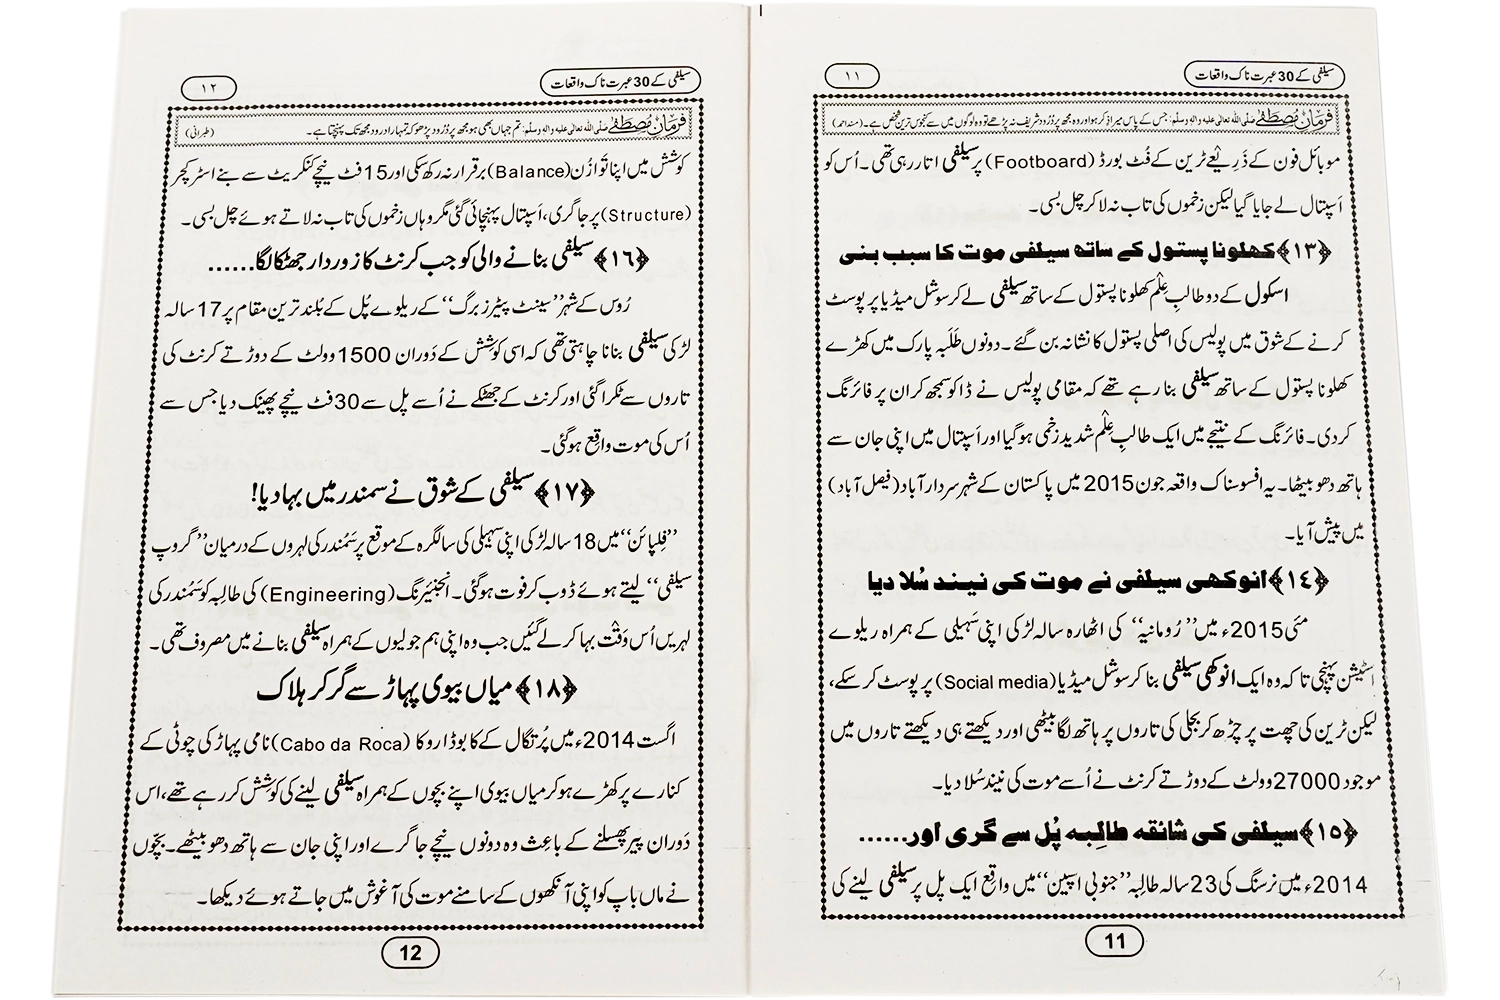 سیلفی کے 30 عبرت ناک واقعات
۱۱
فرمانِ مصطفٰے صلی اللہ تعالی علیہ والہ وسلم: جس کے پاس میرا ذکر ہوا اور وہ مجھ پر دُرود شریف نہ پڑھے تو وہ لوگوں میں سے کنجوس ترین شخص ہے۔ (مسند احمد)
موبائل فون کے ذَرِیعے ٹرین کے فُٹ بورڈ (Footboard) پر سیلفی اتار رہی تھی۔ اُس کو
اَسپتال لے جایا گیا لیکن زخموں کی تاب نہ لا کر چل بسی۔
﴿۱۳﴾ کھلونا پستول کے ساتھ سیلفی موت کا سبب بنی
اسکول کے دو طالبِ عِلْم کھلونا پستول کے ساتھ سیلفی لے کر سوشل میڈیا پر پوسٹ
کرنے کے شوق میں پولیس کی اصلی پستول کا نشانہ بن گئے۔ دونوں طَلَبہ پارک میں کھڑے
کھلونا پستول کے ساتھ سیلفی بنا رہے تھے کہ مقامی پولیس نے ڈاکو سمجھ کر ان پر فائرنگ
کر دی۔ فائرنگ کے نتیجے میں ایک طالبِ عِلْم شدید زخمی ہو گیا اور اَسپتال میں اپنی جان سے
ہاتھ دھو بیٹھا۔ یہ افسوسناک واقعہ جون 2015 میں پاکستان کے شہر سردار آباد (فیصل آباد)
میں پیش آیا۔
﴿۱٤﴾ انوکھی سیلفی نے موت کی نیند سُلا دیا
مئی 2015ء میں ’’رُومانیہ‘‘ کی اٹھارہ سالہ لڑکی اپنی سَہیلی کے ہمراہ ریلوے
اسٹیشن پہنچی تاکہ وہ ایک انوکھی سیلفی بنا کر سوشل میڈیا (Social media) پر پوسٹ کر سکے،
لیکن ٹرین کی چھت پر چڑھ کر بجلی کی تاروں پر ہاتھ لگا بیٹھی اور دیکھتے ہی دیکھتے تاروں میں
موجود 27000 وولٹ کے دوڑتے کرنٹ نے اُسے موت کی نیند سُلا دیا۔
﴿۱۵﴾ سیلفی کی شائقہ طالِبہ پُل سے گری اور......
2014ء میں نرسنگ کی 23 سالہ طالِبہ ’’جنوبی اسپین‘‘ میں واقِع ایک پل پر سیلفی لینے کی
11
سیلفی کے 30 عبرت ناک واقعات
۱۲
فرمانِ مصطفٰے صلی اللہ تعالی علیہ والہ وسلم: تم جہاں بھی ہو مجھ پر دُرود پڑھو کہ تمہارا درود مجھ تک پہنچتا ہے۔ (طبرانی)
کوشش میں اپنا تَوازُن (Balance) برقرار نہ رکھ سکی اور 15 فٹ نیچے کنکریٹ سے بنے اسٹرکچر
(Structure) پر جا گری، اَسپتال پہنچائی گئی مگر وہاں زخموں کی تاب نہ لاتے ہوئے چل بسی۔
﴿۱٦﴾ سیلفی بنانے والی کو جب کرنٹ کا زوردار جھٹکا لگا......
رُوس کے شہر ’’سینٹ پیٹرز برگ‘‘ کے ریلوے پُل کے بُلند ترین مقام پر 17 سالہ
لڑکی سیلفی بنانا چاہتی تھی کہ اسی کوشش کے دَوران 1500 وولٹ کے دوڑتے کرنٹ کی
تاروں سے ٹکرا گئی اور کرنٹ کے جھٹکے نے اُسے پل سے 30 فٹ نیچے پھینک دیا جس سے
اُس کی موت واقِع ہو گئی۔
﴿۱۷﴾ سیلفی کے شوق نے سمندر میں بہا دیا!
’’فِلپائن‘‘ میں 18 سالہ لڑکی اپنی سہیلی کی سالگرہ کے موقع پر سَمُندر کی لہروں کے درمیان ’’گروپ
سیلفی‘‘ لیتے ہوئے ڈوب کر فوت ہو گئی۔ انجنیئرنگ (Engineering) کی طالِبہ کو سَمُندر کی
لہریں اُس وَقْت بہا کر لے گئیں جب وہ اپنی ہم جولیوں کے ہمراہ سیلفی بنانے میں مصروف تھی۔
﴿۱۸﴾ میاں بیوی پہاڑ سے گر کر ہلاک
اگست 2014ء میں پُرتگال کے کابو ڈا روکا (Cabo da Roca) نامی پہاڑ کی چوٹی کے
کنارے پر کھڑے ہو کر میاں بیوی اپنے بچوں کے ہمراہ سیلفی لینے کی کوشش کر رہے تھے، اس
دَوران پیر پھسلنے کے باعِث وہ دونوں نیچے جا گرے اور اپنی جان سے ہاتھ دھو بیٹھے۔ بچّوں
نے ماں باپ کو اپنی آنکھوں کے سامنے موت کی آغوش میں جاتے ہوئے دیکھا۔
12